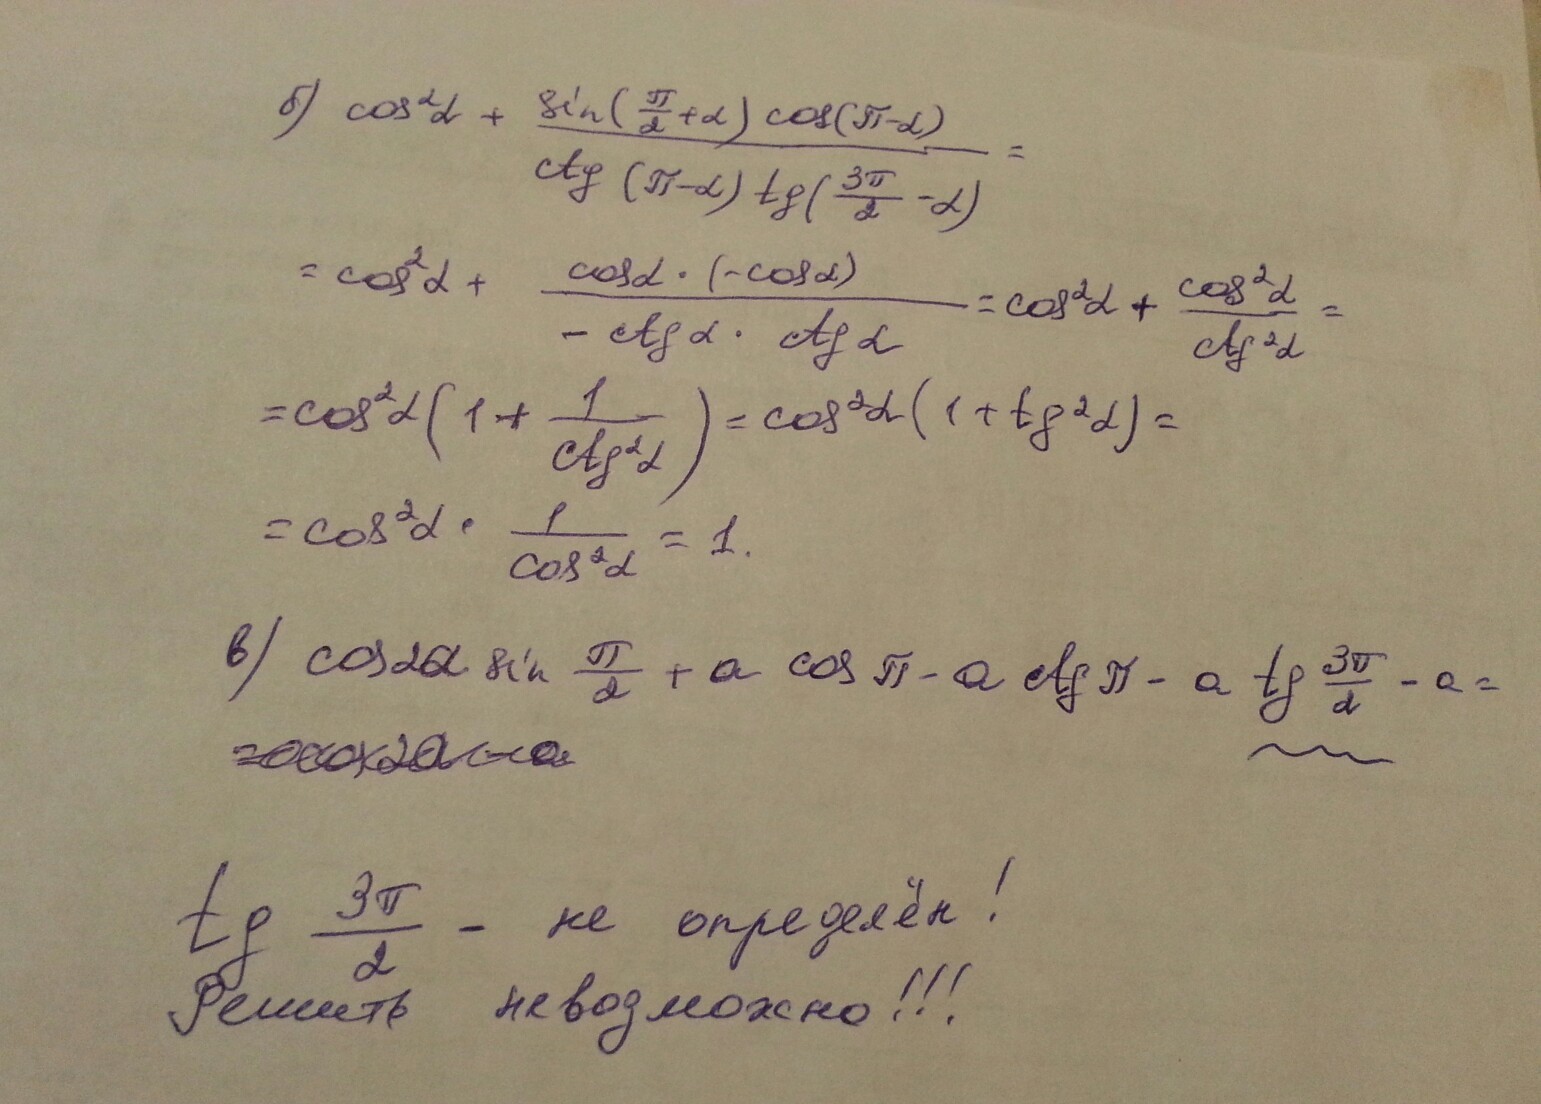 б) cos²α + sin(π/2 + α) cos(π-α) / ctg (π-α) tg(3π/2 - α) =
= cos²α + cosα · (-cosα) / - ctg α · ctg α = cos²α + cos²α / ctg²α =
= cos²α (1 + 1 / ctg²α) = cos²α (1 + tg²α) =
= cos²α · 1 / cos²α = 1.
в) cos2a sin π/2 + a cos π - a ctg π - a tg 3π/2 - a =
tg 3π/2 - не определён!
Решить невозможно!!!